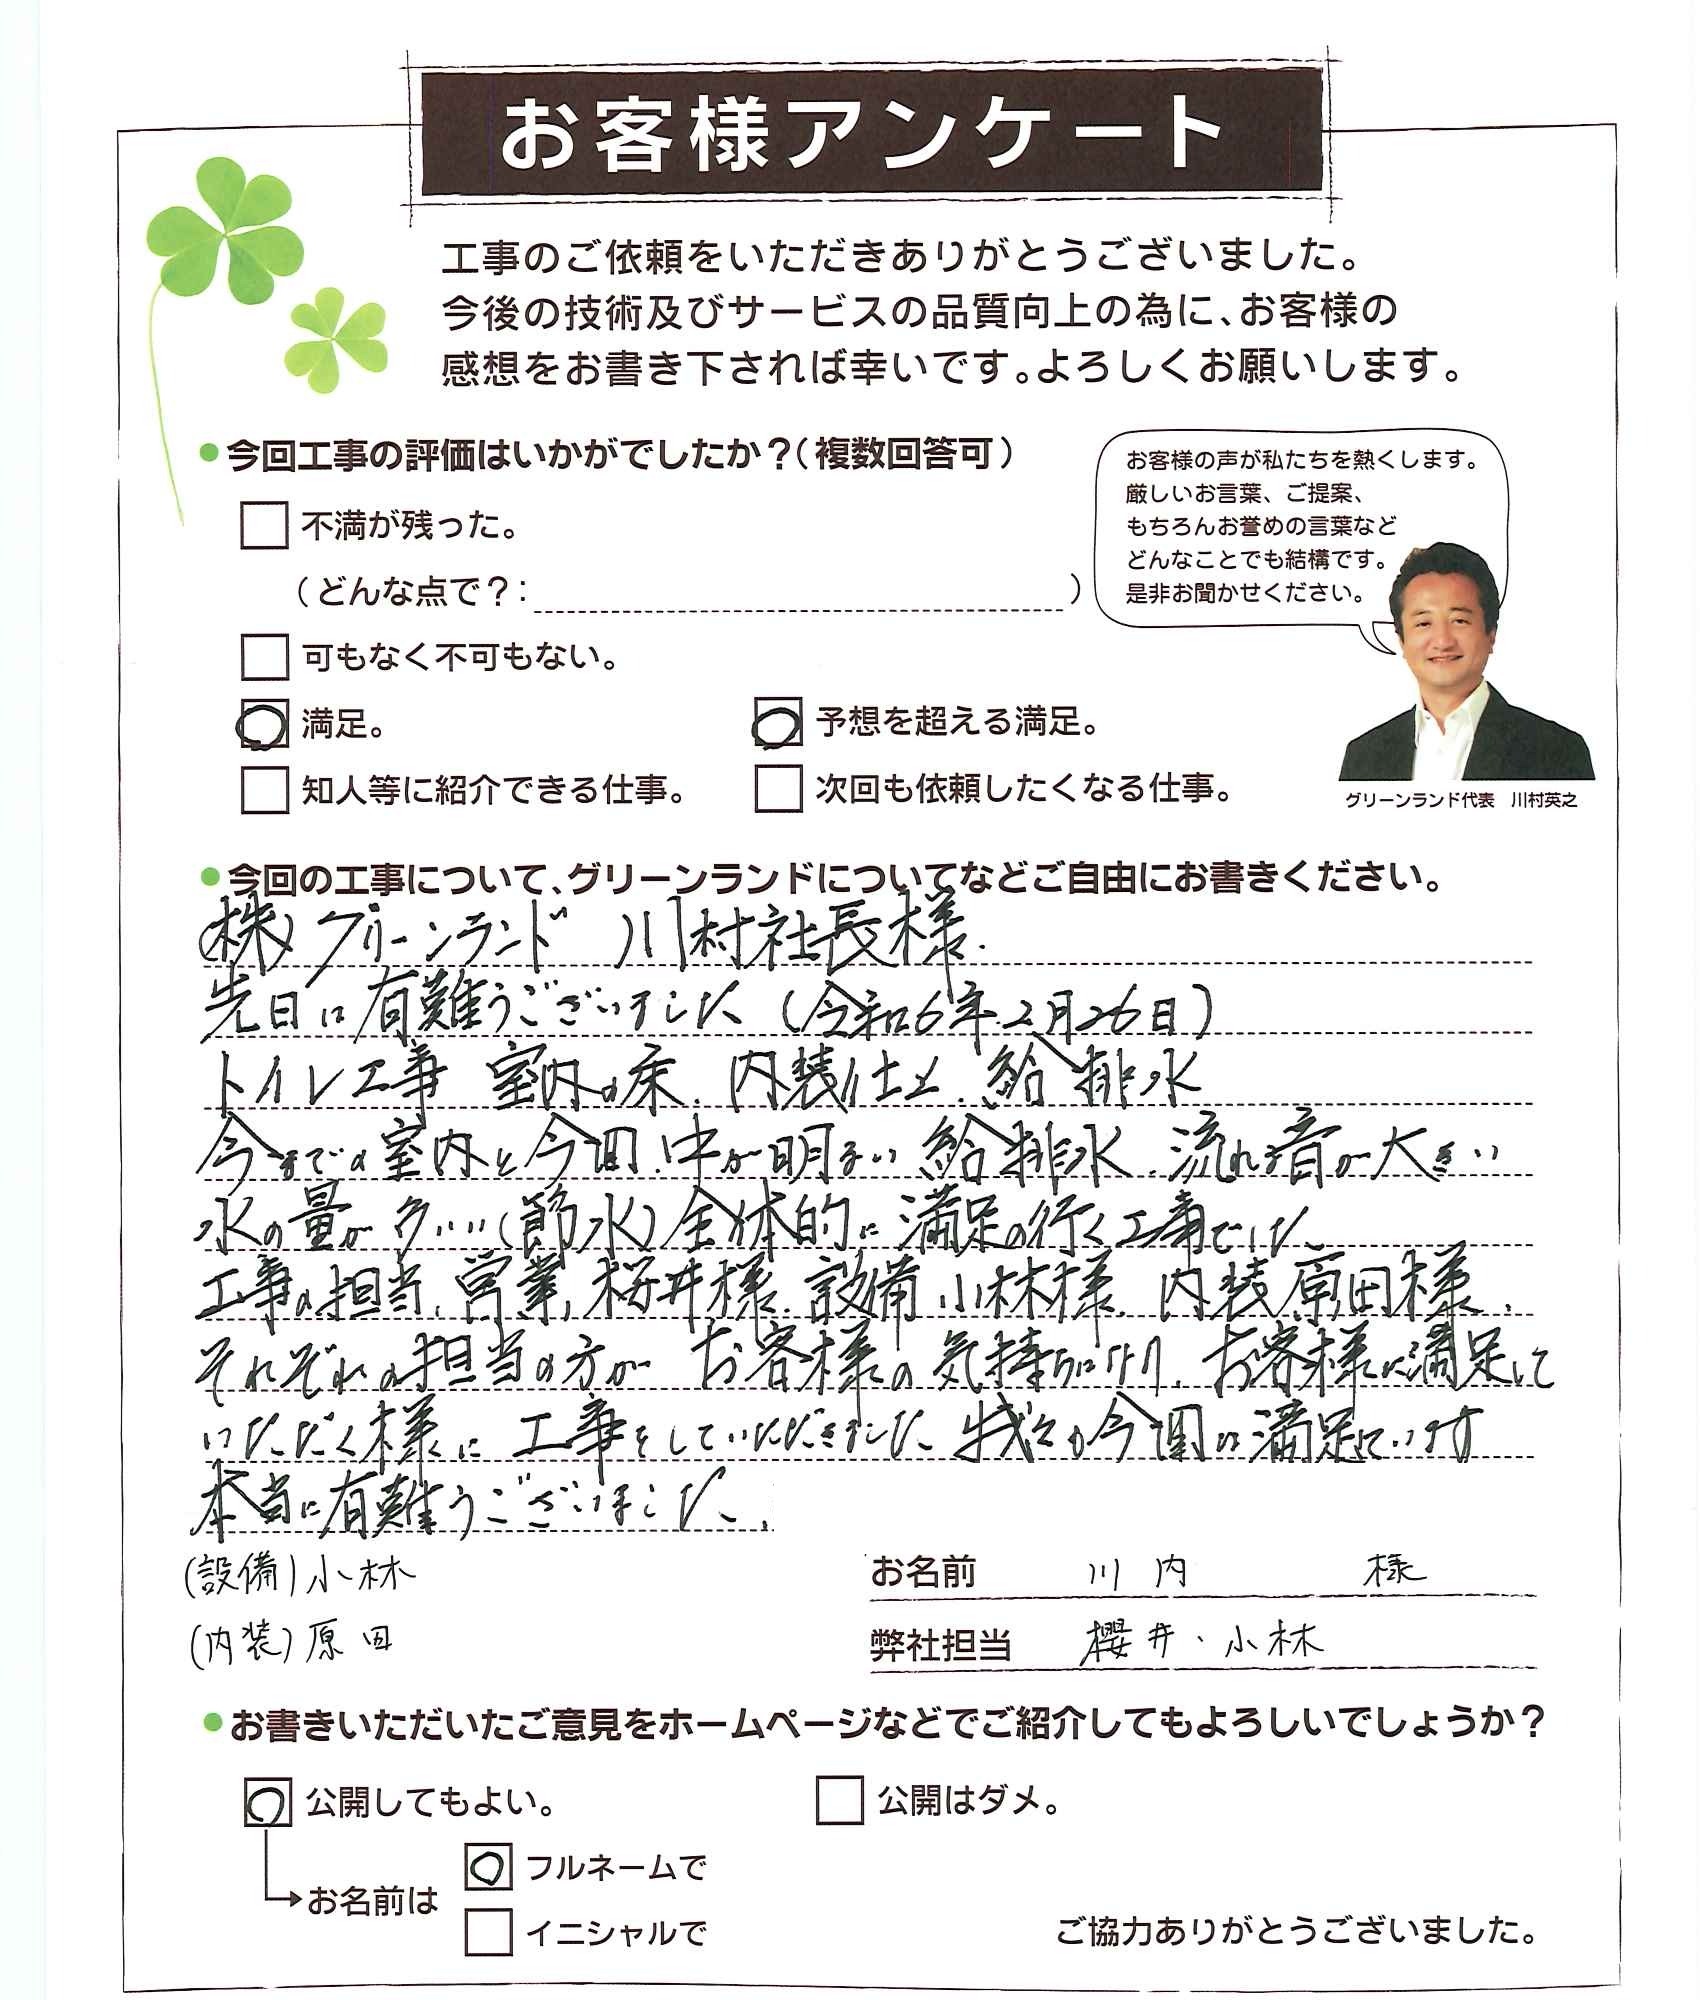 お客様アンケート
工事のご依頼をいただきありがとうございました。
今後の技術及びサービスの品質向上の為に、お客様の
感想をお書き下されば幸いです。よろしくお願いします。
●今回工事の評価はいかがでしたか？（複数回答可）
不満が残った。
（どんな点で？：　）
可もなく不可もない。
満足。
予想を超える満足。
知人等に紹介できる仕事。
次回も依頼したくなる仕事。
お客様の声が私たちを熱くします。
厳しいお言葉、ご提案、
もちろんお誉めの言葉など
どんなことでも結構です。
是非お聞かせください。
グリーンランド代表　川村英之
●今回の工事について、グリーンランドについてなどご自由にお書きください。
(株)グリーンランド 川村社長様.
先日は有難うございました (令和6年2月26日)
トイレ工事 室内の床、内装仕上、給排水
今までの室内と今回、中が明るい 給排水、流れる音が大きい
水の量が多い(節水)全体的に満足の行く工事でした
工事の担当、営業、桜井様、設備 小林様、内装原田様、
それぞれの担当の方が お客様の気持ちになり、お客様に満足して
いただく様に 工事をしていただきました 我々も今回は満足しています
本当に有難うございました、
(設備) 小林
(内装) 原田
お名前　川内　様
弊社担当　櫻井・小林
●お書きいただいたご意見をホームページなどでご紹介してもよろしいでしょうか？
公開してもよい。
公開はダメ。
お名前は
フルネームで
イニシャルで
ご協力ありがとうございました。